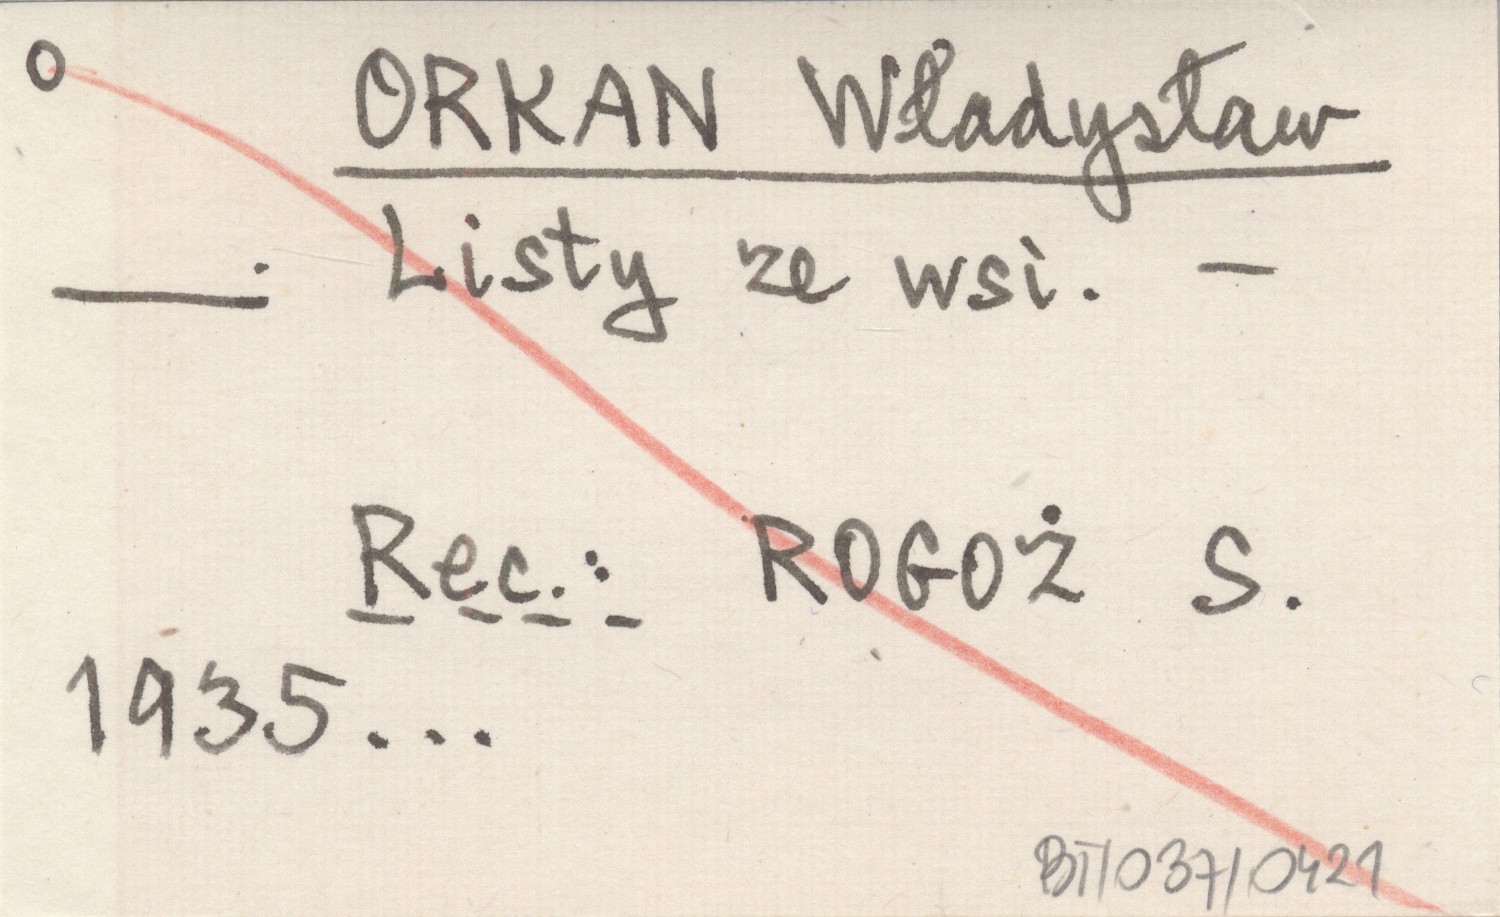 O ORKAN Władysław
___. Listy ze wsi. –
Rec.: ROGOŻ S.
1935...
BT/037/0421